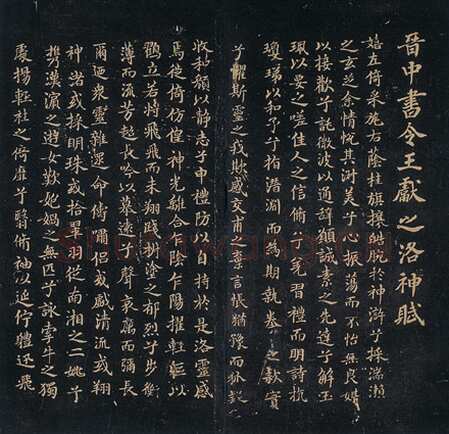 晉中書令王獻之洛神賦
嬉左倚采旄右蔭桂旗攘皓腕於神滸兮採湍瀨
之玄芝余情悅其淑美兮心振蕩而不怡無良媒
以接歡兮託微波以通辭願誠素之先達兮解玉
珮以要之嗟佳人之信脩兮羌習禮而明詩抗
瓊珶以和予兮指潛淵而為期執拳拳之款實
兮懼斯靈之我欺感交甫之棄言悵猶豫而狐疑
收和顏以靜志兮申禮防以自持於是洛靈感
焉徙倚彷徨神光離合乍陰乍陽擢輕軀以
鶴立若將飛而未翔踐椒塗之郁烈兮步衡
薄而流芳超長吟以慕遠兮聲哀厲而彌長
爾迺眾靈雜遝命儔嘯侶或戲清流或翔
神渚或採明珠或拾翠羽從南湘之二姚兮
携漢濱之遊女歎妭媧之無匹兮詠牽牛之獨
處揚輕袿之倚靡兮翳脩袖以延佇體迅飛